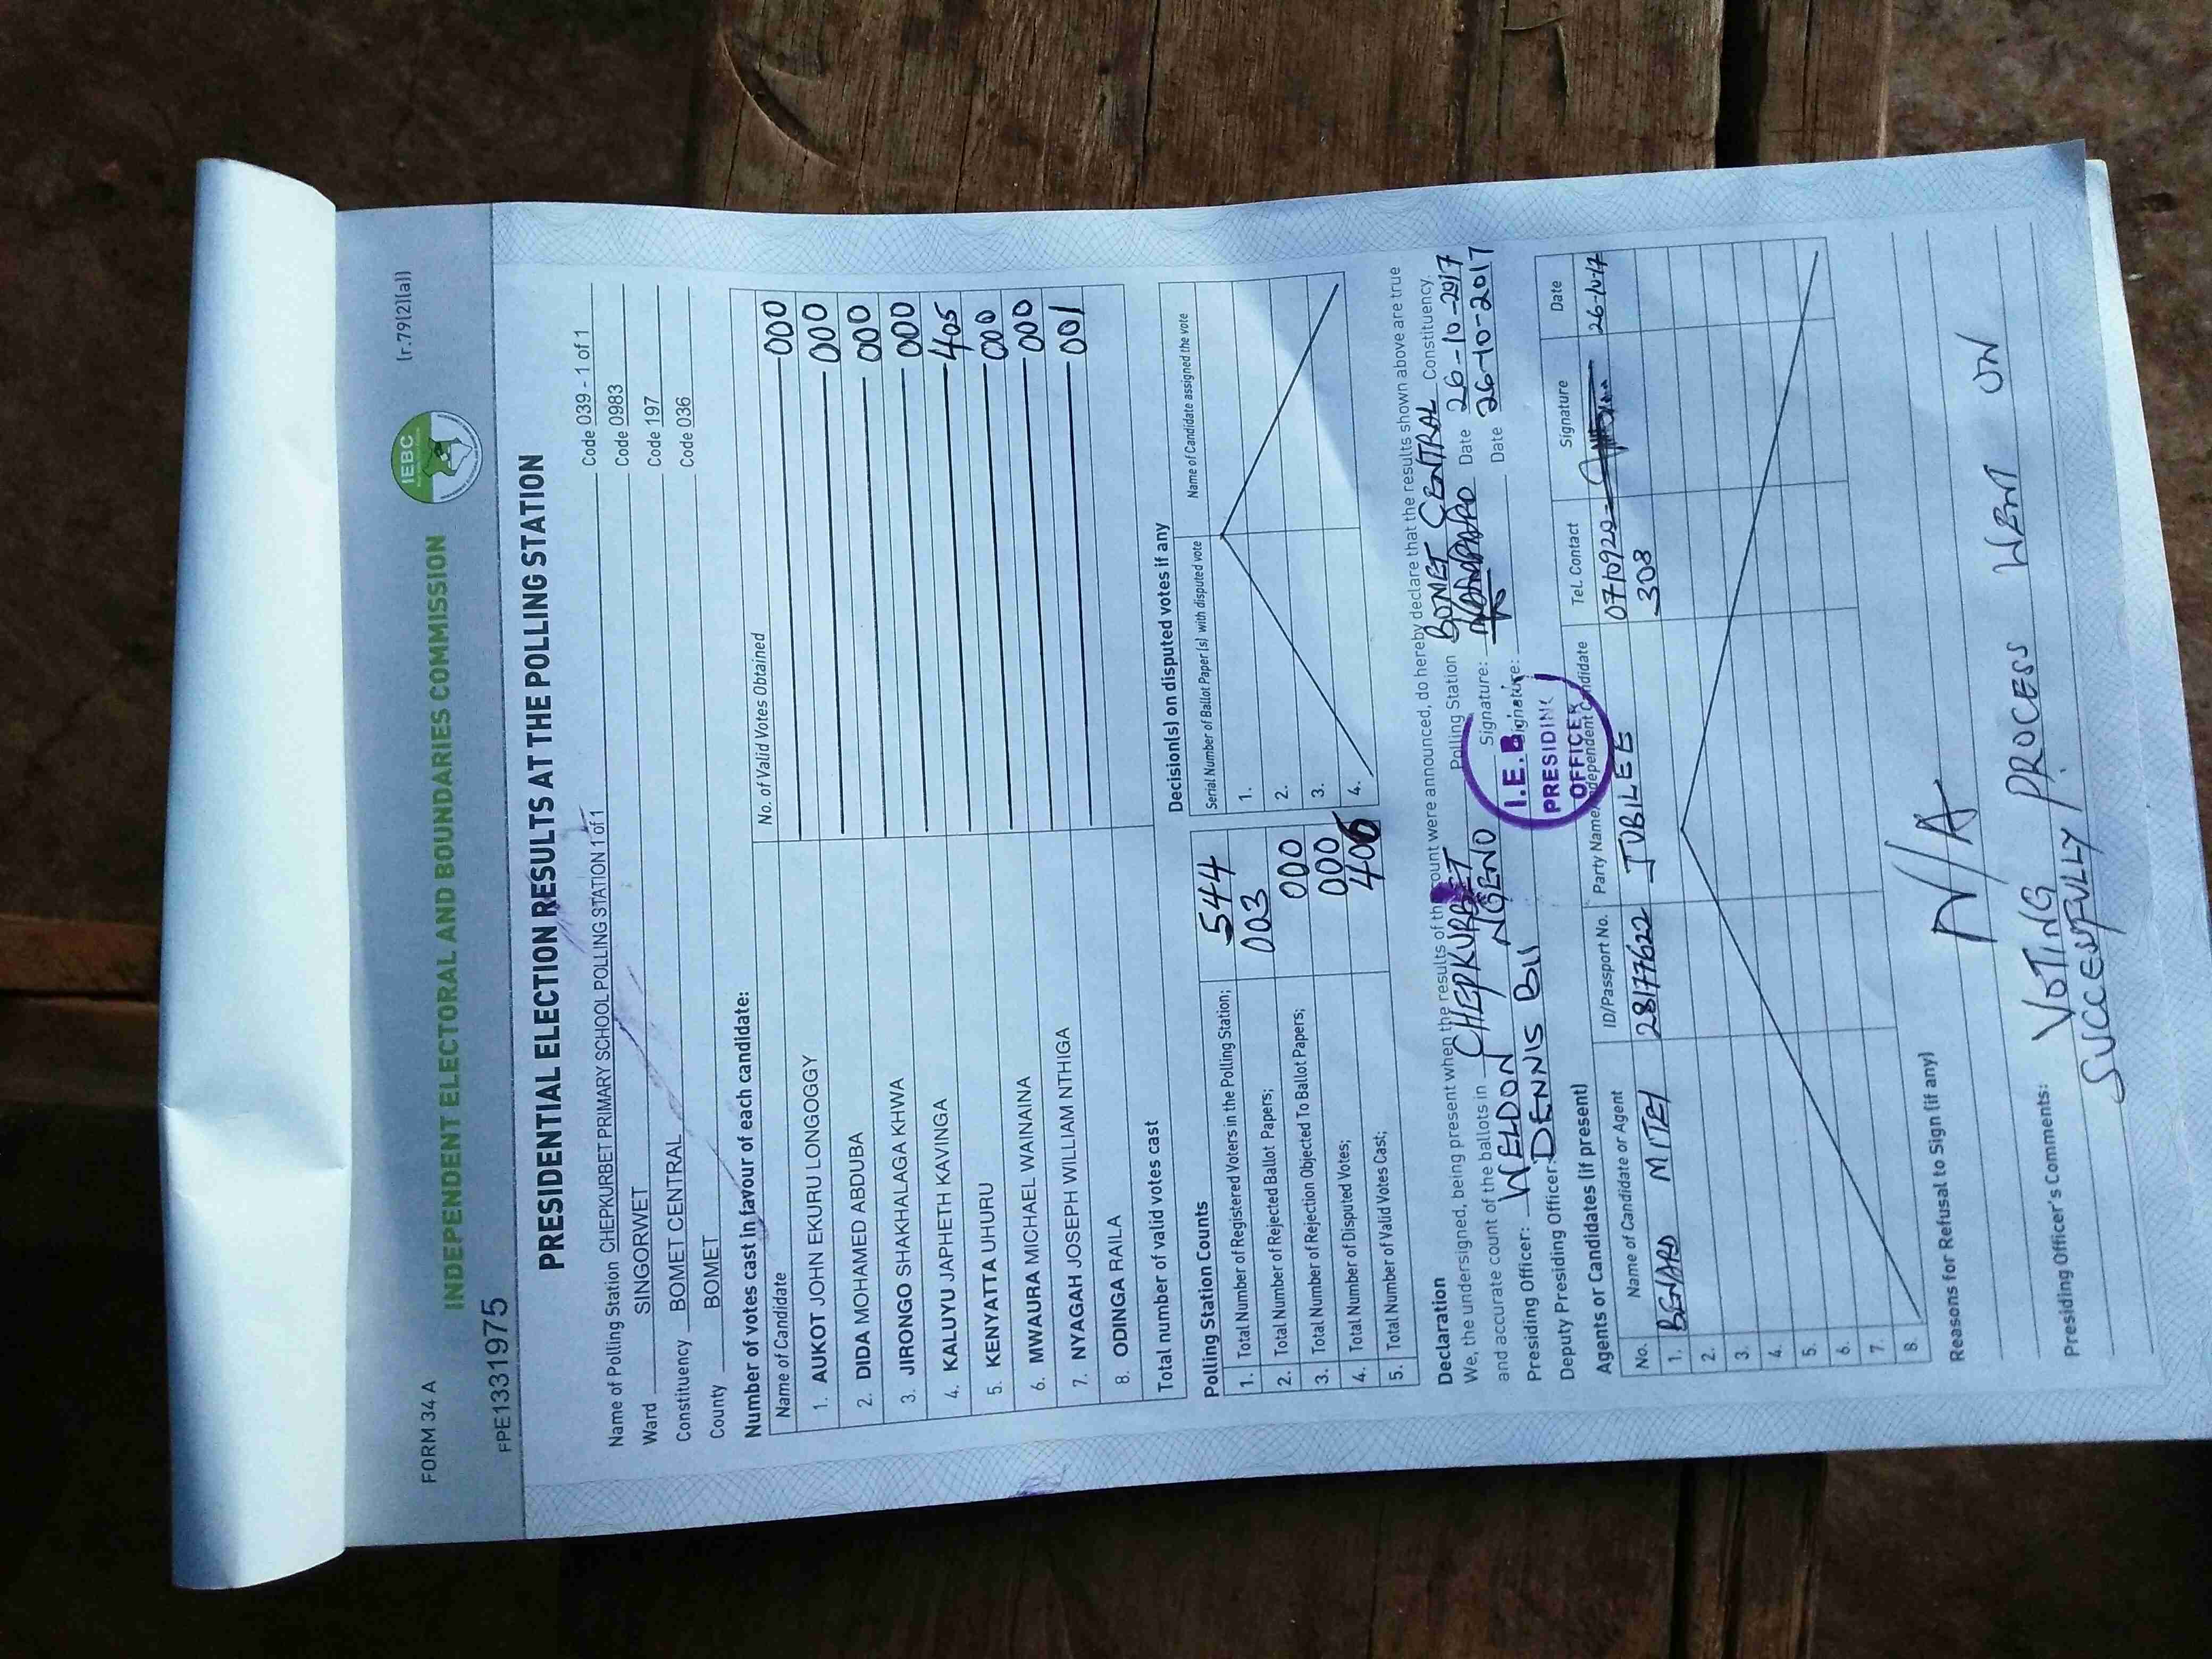 FORM 34 A
(r.79(2)(a))
INDEPENDENT ELECTORAL AND BOUNDARIES COMMISSION
IEBC
FPE1331975
PRESIDENTIAL ELECTION RESULTS AT THE POLLING STATION
Name of Polling Station CHEPKURBET PRIMARY SCHOOL POLLING STATION 1 of 1 Code 039 - 1 of 1
Ward SINGORWET Code 0983
Constituency BOMET CENTRAL Code 197
County BOMET Code 036
Number of votes cast in favour of each candidate:
Name of Candidate No. of Valid Votes Obtained
1. AUKOT JOHN EKURU LONGOGGY 000
2. DIDA MOHAMED ABDUBA 000
3. JIRONGO SHAKHALAGA KHWA 000
4. KALUYU JAPHETH KAVINGA 000
5. KENYATTA UHURU 405
6. MWAURA MICHAEL WAINAINA 000
7. NYAGAH JOSEPH WILLIAM NTHIGA 000
8. ODINGA RAILA 001
Total number of valid votes cast
Polling Station Counts
1. Total Number of Registered Voters in the Polling Station; 544
2. Total Number of Rejected Ballot Papers; 003
3. Total Number of Rejection Objected To Ballot Papers; 000
4. Total Number of Disputed Votes; 000
5. Total Number of Valid Votes Cast; 406
Decision(s) on disputed votes if any
Serial Number of Ballot Paper (s) with disputed vote Name of Candidate assigned the vote
1.
2.
3.
4.
Declaration
We, the undersigned, being present when the results of the count were announced, do hereby declare that the results shown above are true
and accurate count of the ballots in CHEPKURBET Polling Station BOMET CENTRAL Constituency.
Presiding Officer: WELDON NGENO Signature: Date 26-10-2017
Deputy Presiding Officer: DENNIS Signature: Date 26-10-2017
I.E.B
PRESIDING
OFFICER
Agents or Candidates (if present)
No. Name of Candidate or Agent ID/Passport No. Party Name/Independent Candidate Tel. Contact Signature Date
1. BENARD MITEI 28177622 JUBILEE 0710922- 26-10-17
308
2.
3.
4.
5.
6.
7.
8.
Reasons for Refusal to Sign (if any)
N/A
Presiding Officer's Comments: VOTING PROCESS WENT ON
SUCCESSFULLY.